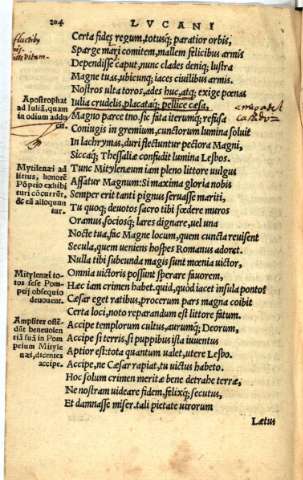 204 LVCANI
Certa fides regum, totusq; paratior orbis,
Sparge mari comitem, mallem felicibus armis
Dependisse caput, nunc clades deniq; lustra
Magne tuas, ubicunq; iaces ciuilibus armis.
Nostros ulta toros, ades huc, atq; exige pœnas
Apostrophat
ad Iuliã, quam
in odium addu
Iulia crudelis, placataq; pellice cæsa,
Magno parce tuo. sic fata iterumq; refusa
Coniugis in gremium, cunctorum lumina soluit
In lachrymas, duri flectuntur pectora Magni,
Siccaq; Thessaliæ confudit lumina Lesbos.
Mitylenæi ad
litus, honorẽ
Põpeio exhibi
turi cõcurrẽt,
& eũ alloquun
tur.
Tunc Mityleneum iam pleno littore uulgus
Affatur Magnum: Si maxima gloria nobis
Semper erit tanti pignus seruasse mariti,
Tu quoq; deuotos sacro tibi fœdere muros
Oramus, sociosq; lares dignare, uel una
Nocte tua, fac Magne locum, quem cuncta reuisent
Secula, quem ueniens hospes Romanus adoret.
Nulla tibi subeunda magis sunt mœnia uictor,
Mitylenæi to-
tos sese Pom-
peij obsequio
deuouent.
Omnia uictoris possunt sperare fauorem,
Hæc iam crimen habet. quid, quòd iacet insula ponto?
Cæsar eget ratibus, procerum pars magna coibit
Certa loci, noto reparandum est littore fatum.
Ampliter ostẽ
dũt beneuolen
tiã suã in Pom
peium Mityle
næi, dicentes
accipe.
Accipe templorum cultus, aurumq; Deorum,
Accipe si terris, si puppibus ista iuuentus
Aptior est: tota quantum ualet, utere Lesbo.
Accipe, ne Cæsar rapiat, tu uictus habeto.
Hoc solum crimen meritæ bene detrahe terræ,
Ne nostram uideare fidem, felixq; secutus,
Et damnasse miser. tali pietate uirorum
Lætus